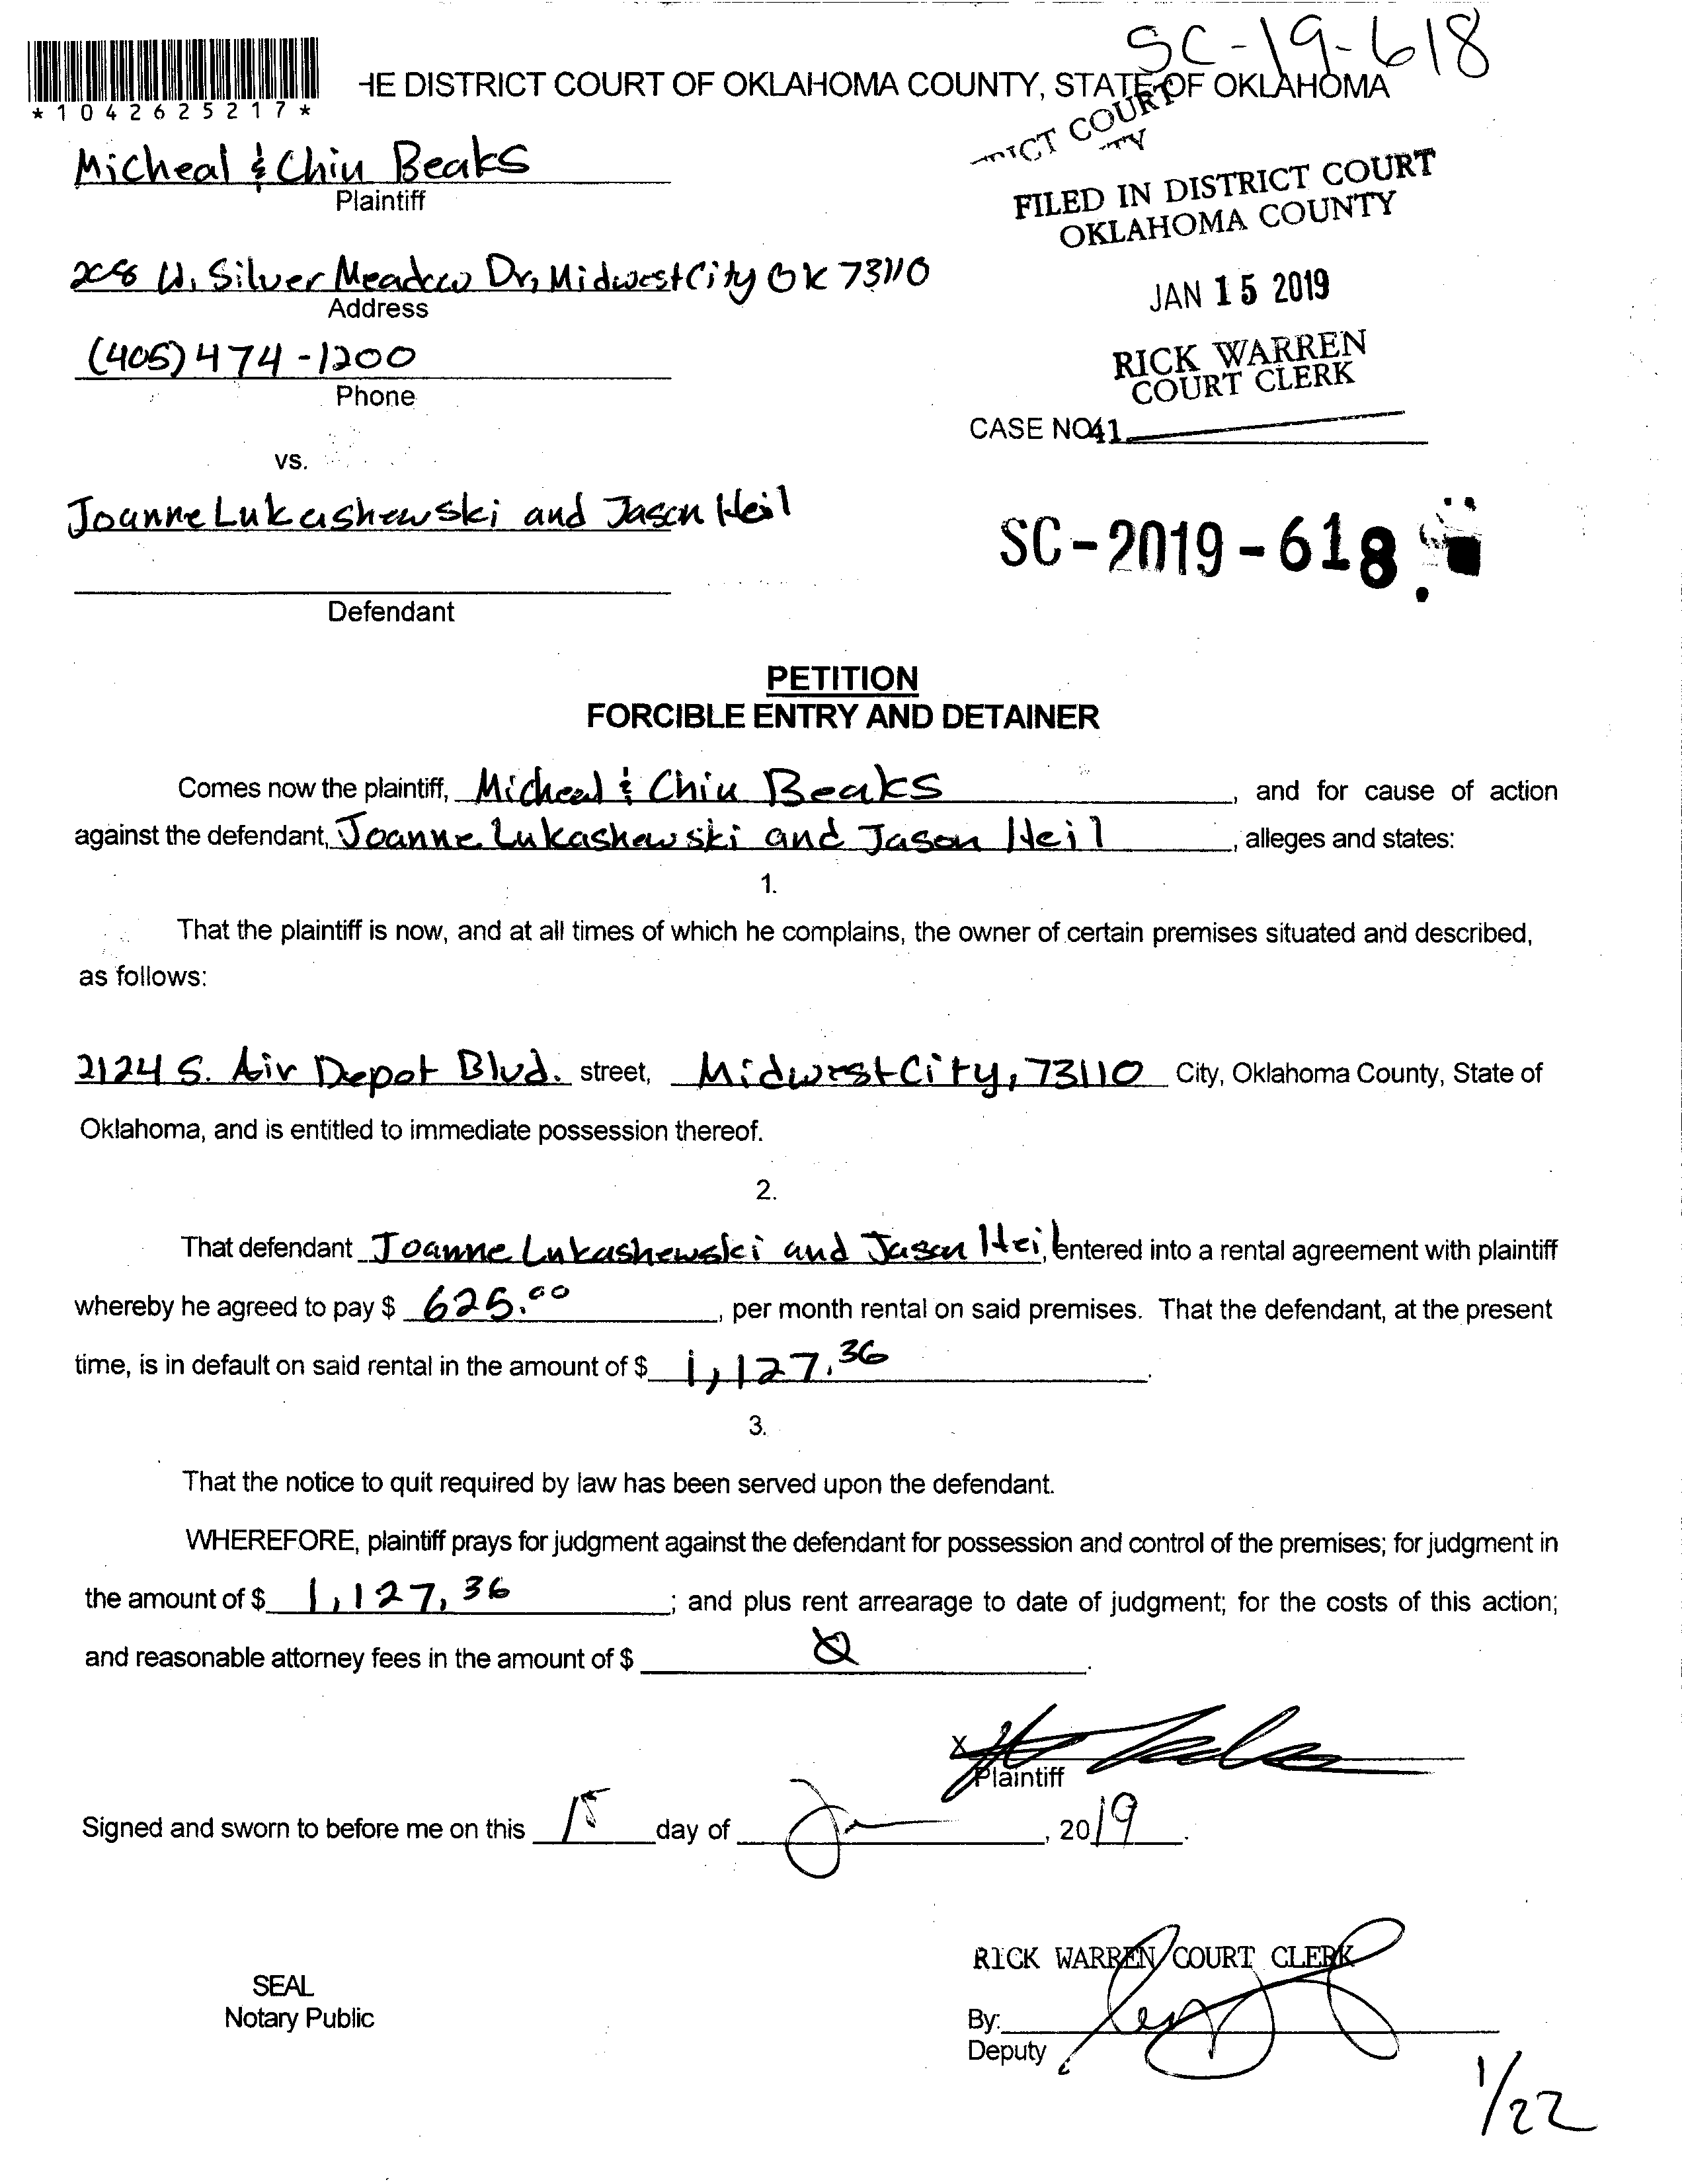 SC-19-618
HE DISTRICT COURT OF OKLAHOMA COUNTY, STATE OF OKLAHOMA
*1042625217*
COURT
Micheal & Chin Beaks
Plaintiff
FILED IN DISTRICT COURT
OKLAHOMA COUNTY
208 W. Silver Meadow Dr, Midwest City OK 73110
Address
JAN 15 2019
(405) 474-1200
Phone
RICK WARREN
COURT CLERK
CASE NO41
vs.
Joanne Lukashewski and Jason Heil
SC-2019-618
Defendant
PETITION
FORCIBLE ENTRY AND DETAINER
Comes now the plaintiff, Micheal & Chin Beaks, and for cause of action
against the defendant, Joanne Lukashewski and Jason Heil, alleges and states:
1.
That the plaintiff is now, and at all times of which he complains, the owner of certain premises situated and described,
as follows:
2124 S. Air Depot Blvd. street, Midwest City, 73110 City, Oklahoma County, State of
Oklahoma, and is entitled to immediate possession thereof.
2.
That defendant Joanne Lukashewski and Jason Heil, entered into a rental agreement with plaintiff
whereby he agreed to pay $ 625.00, per month rental on said premises. That the defendant, at the present
time, is in default on said rental in the amount of $ 1,127.36.
3.
That the notice to quit required by law has been served upon the defendant.
WHEREFORE, plaintiff prays for judgment against the defendant for possession and control of the premises; for judgment in
the amount of $ 1,127.36; and plus rent arrearage to date of judgment; for the costs of this action;
and reasonable attorney fees in the amount of $ 0.
X
Plaintiff
Signed and sworn to before me on this 15 day of , 2019.
RICK WARREN COURT CLERK
SEAL
Notary Public
By:
Deputy
1/22